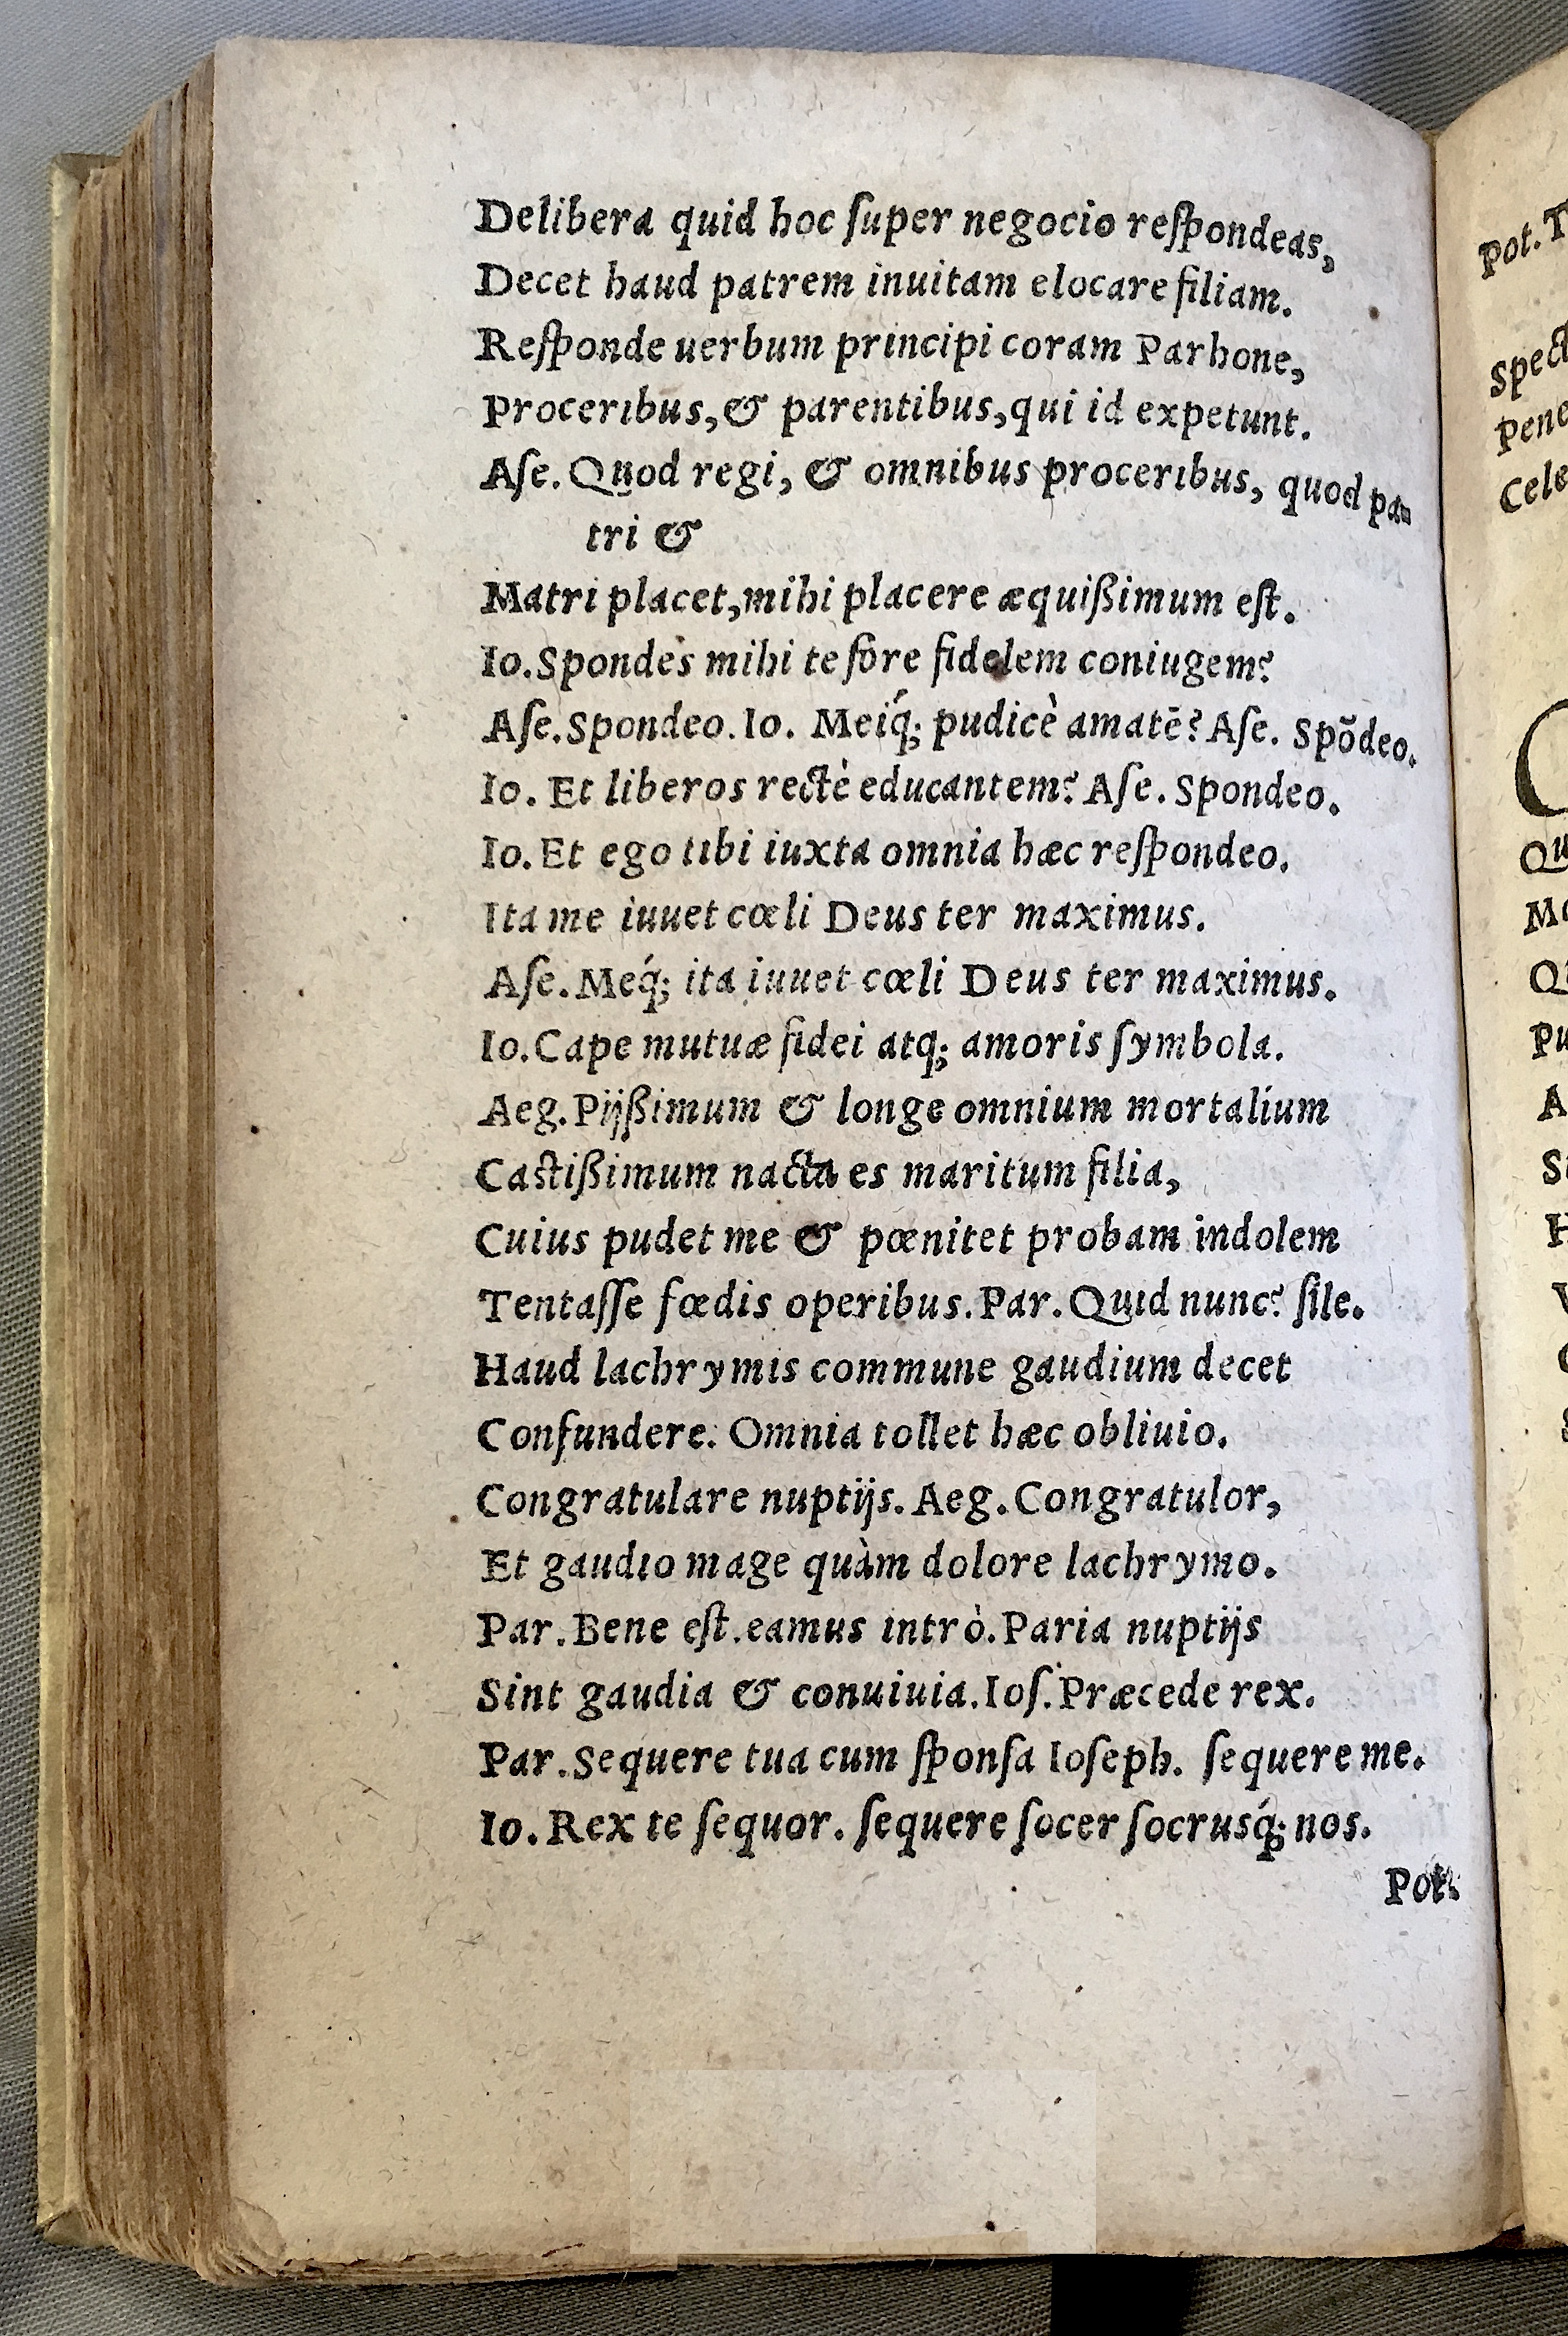 Delibera quid hoc ſuper negocio reſpondeas,
Decet haud patrem inuitam elocare filiam.
Reſponde uerbum principi coram Parhone,
Proceribus, & parentibus, qui id expetunt.
Aſe. Quod regi, & omnibus proceribus, quod pa
tri &
Matri placet, mihi placere æquißimum eſt.
Io. Spondes mihi te fore fidelem coniugem?
Aſe. Spondeo. Io. Meiq́; pudicè amatē? Aſe. Spōdeo.
Io. Et liberos rectè educantem? Aſe. Spondeo.
Io. Et ego tibi iuxta omnia hæc reſpondeo.
Ita me iuuet cœli Deus ter maximus.
Aſe. Meq́; ita iuuet cœli Deus ter maximus.
Io. Cape mutuæ fidei atq; amoris ſymbola.
Aeg. Pijßimum & longe omnium mortalium
Caſtißimum nacta es maritum filia,
Cuius pudet me & pœnitet probam indolem
Tentaſſe fœdis operibus. Par. Quid nunc? ſile.
Haud lachrymis commune gaudium decet
Confundere. Omnia tollet hæc obliuio.
Congratulare nuptijs. Aeg. Congratulor,
Et gaudio mage quàm dolore lachrymo.
Par. Bene eſt. eamus intrò. Paria nuptijs
Sint gaudia & conuiuia. Ioſ. Præcede rex.
Par. Sequere tua cum ſponſa Ioſeph. ſequere me.
Io. Rex te ſequor. ſequere ſocer ſocrusq́; nos.
Pot.
Pot. T
Spect
Pene
Cele
Qu
Ma
Pu
A